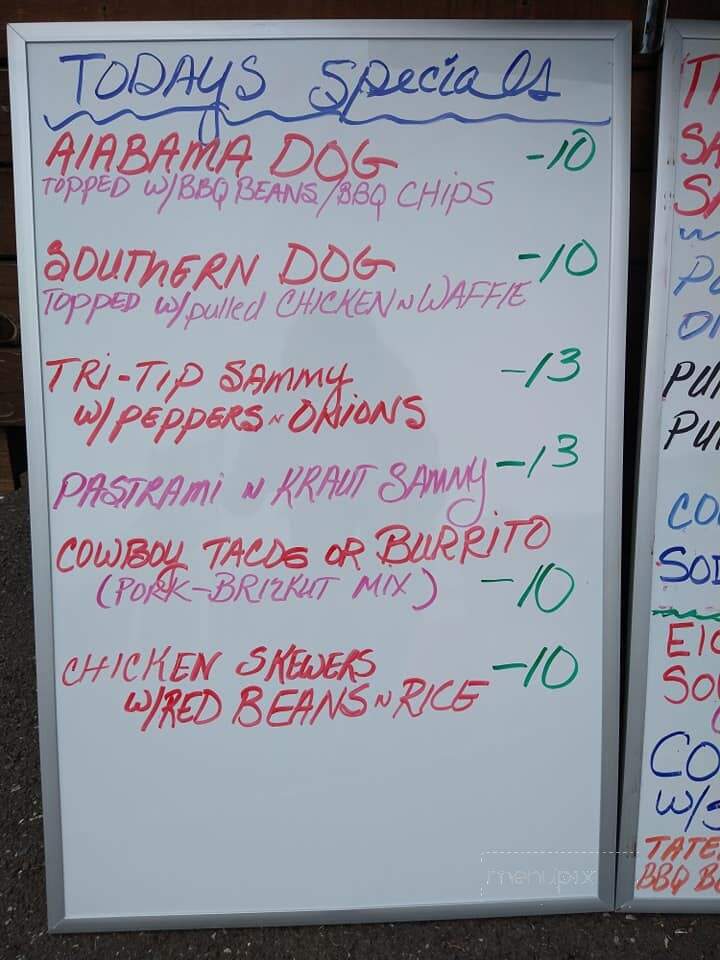 TODAYS Specials
ALABAMA DOG -10
TOPPED W/BBQ BEANS/BBQ CHIPS
SOUTHERN DOG -10
TOPPED W/pulled CHICKEN N WAFFLE
TRI-TIP SAMMY -13
W/PEPPERS N ONIONS
PASTRAMI N KRAUT SAMMY -13
COWBOY TACOS OR BURRITO
(PORK-BRIZKUT MIX) -10
CHICKEN SKEWERS -10
W/RED BEANS N RICE
menupix
SA
PU
PU
CO
SO
CO
W/S
TATE
BBQ B